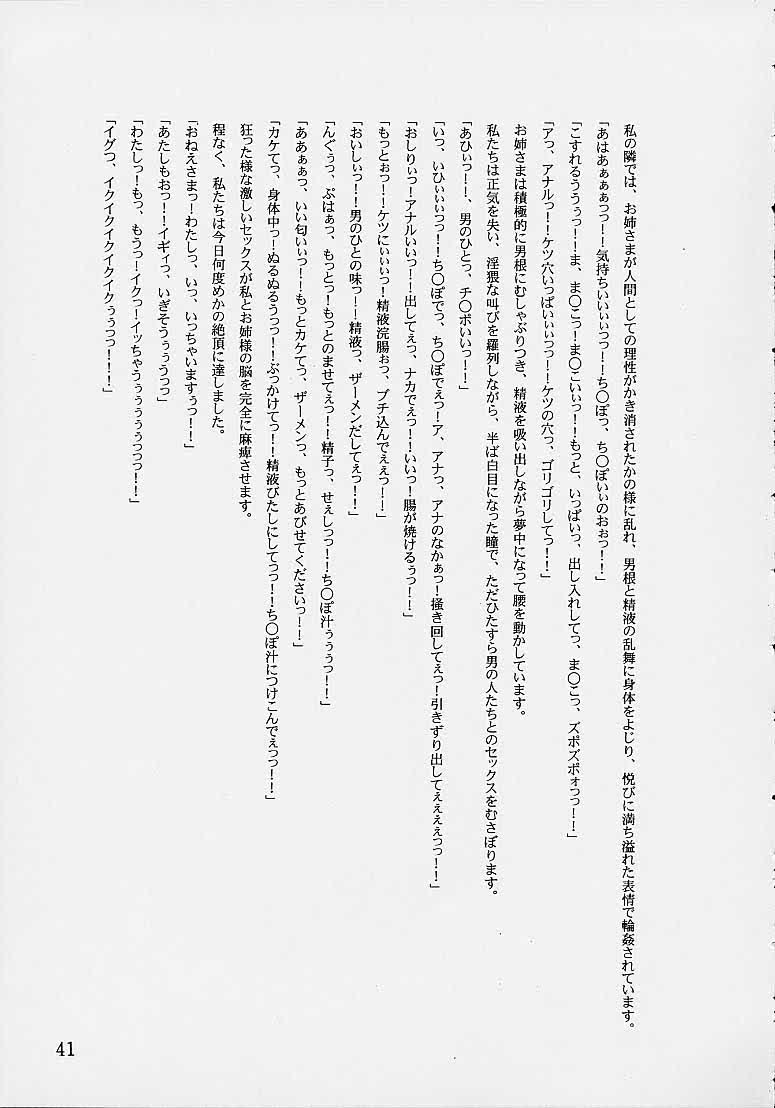 私の隣では、お姉さまが人間としての理性がかき消されたかの様に乱れ、男根と精液の乱舞に身体をよじり、悦びに満ち溢れた表情で輪姦されています。
「あはあぁぁぁっっ！！気持ちいいぃぃっっ！！ち〇ぽっ、ち〇ぽいぃのおぉっ！！」
「こすれるううぅっ！！ま、ま〇こっ！ま〇こいぃっ！！もっと、いっぱいっ、出し入れしてっ、ま〇こっ、ズポズポォっっ！！」
「アっ、アナルっ！！ケツ穴いっぱいぃぃっっ！！ケツの穴っ、ゴリゴリしてっ！！」
お姉さまは積極的に男根にむしゃぶりつき、精液を吸い出しながら夢中になって腰を動かしています。
私たちは正気を失い、淫猥な叫びを羅列しながら、半ば白目になった瞳で、ただひたすら男の人たちとのセックスをむさぼります。
「あひぃっ！！、男のひとっ、チ〇ポいいっ！！」
「いっ、いひぃぃぃっっ！！ち〇ぽでっ、ち〇ぽでぇっ！ア、アナっ、アナのなかぁっ！掻き回してぇっ！引きずり出してえぇぇぇっっ！！」
「おしりぃっ！アナルいいっ！！出してぇっ、ナカでぇっ！！いいっ！腸が焼けるぅっ！！」
「もっとぉっ！！ケツにぃぃぃっ！精液浣腸ぉっ、ブチ込んでぇぇっ！！」
「おいしぃっ！！男のひとの味っ！！精液っ、ザーメンだしてぇっ！！」
「んぐぅっ、ぷはぁっ、もっとっ！もっとのませてえぇっ！！精子っ、せぇしっっ！！ち〇ぽ汁ぅぅぅっ！！」
「ああぁぁっ、いい匂いぃっ！！もっとカケてっ、ザーメンっ、もっとあびせてくださいっ！！」
「カケてっ、身体中っ！ぬるぬるうっっ！！ぶっかけてっ！！精液びたしにしてっっ！！ち〇ぽ汁につけこんでぇっっ！！」
狂った様な激しいセックスが私とお姉様の脳を完全に麻痺させます。
程なく、私たちは今日何度めかの絶頂に達しました。
「おねえさまっ！わたしっ、いっ、いっちゃいますぅっ！！」
「あたしもおっ！！イギィっ、いぎそうぅぅうっっ」
「わたしっ！もっ、もうっ！イクっ！イッちゃうぅぅぅぅぅっっっ！！」
「イグっ、イクイクイクイクイクぅぅうっっ！！！」
41